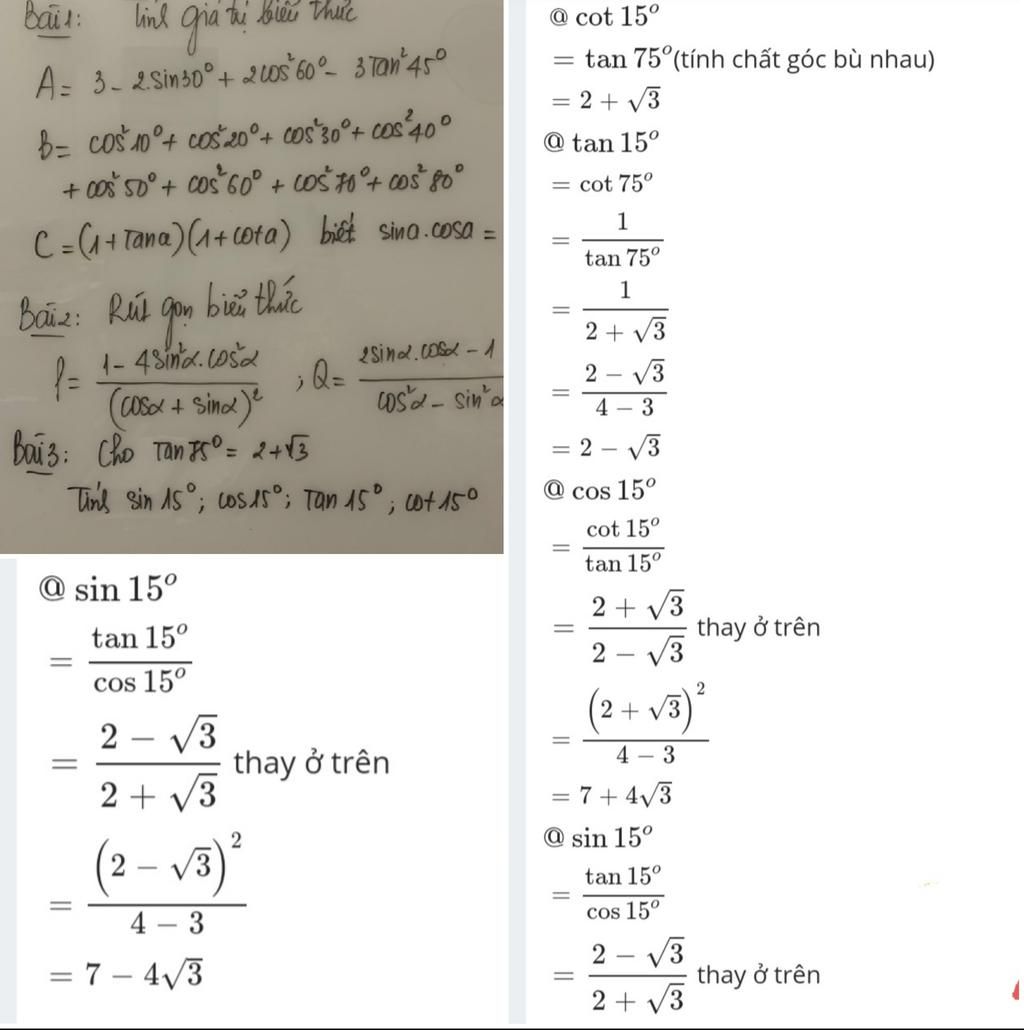 Bài 1: Tính giá trị biểu thức
A = 3 - 2.sin30° + 2cos²60° - 3Tan²45°
B = cos²10° + cos²20° + cos²30° + cos²40°
+ cos²50° + cos²60° + cos²70° + cos²80°
C = (1 + Tana)(1 + cota) biết sina.cosa =
Bài 2: Rút gọn biểu thức
P = (1 - 4sin²α.cos²α)/(cosα + sinα)² ; Q = (2sinα.cosα - 1)/(cos²α - sin²α
Bài 3: Cho Tan75° = 2+√3
Tính sin 15°; cos15°; Tan 15°; cot 15°
@ sin 15°
= tan 15°/cos 15°
= (2 - √3)/(2 + √3) thay ở trên
= (2 - √3)²/(4 - 3)
= 7 - 4√3
@ cot 15°
= tan 75°(tính chất góc bù nhau)
= 2 + √3
@ tan 15°
= cot 75°
= 1/tan 75°
= 1/(2 + √3)
= (2 - √3)/(4 - 3)
= 2 - √3
@ cos 15°
= cot 15°/tan 15°
= (2 + √3)/(2 - √3) thay ở trên
= (2 + √3)²/(4 - 3)
= 7 + 4√3
@ sin 15°
= tan 15°/cos 15°
= (2 - √3)/(2 + √3) thay ở trên